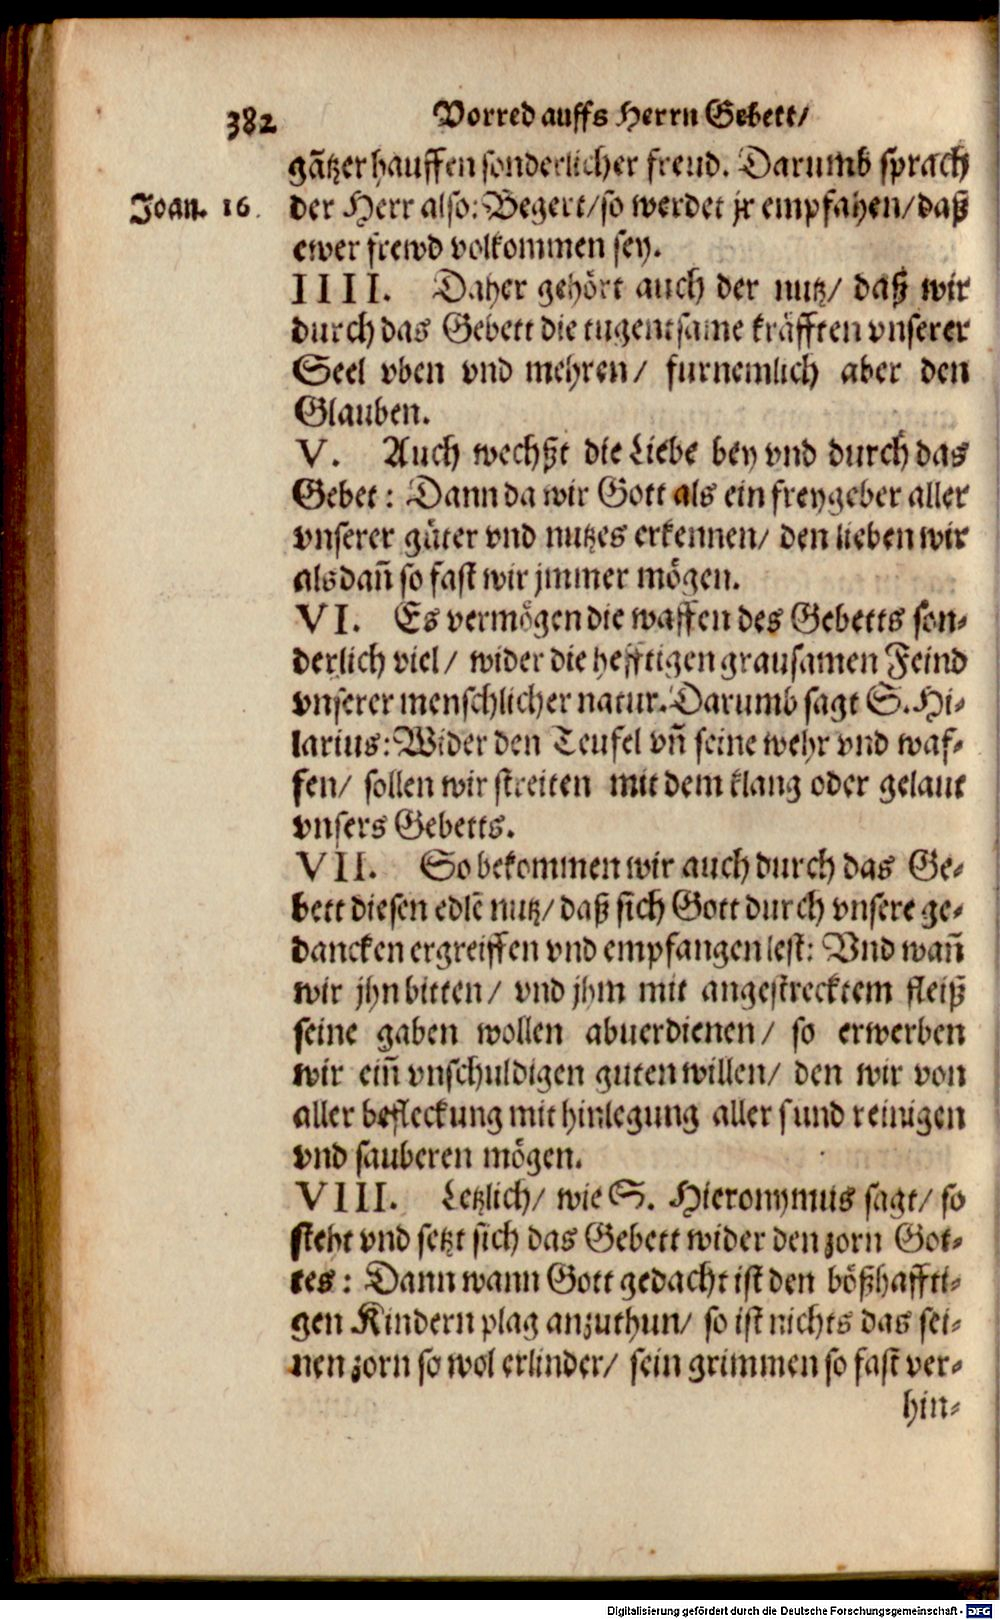 382 Vorred auffs Herrn Gebett/
gātzer hauffen sonderlicher freud. Darumb sprach
Joan. 16. der Herr also: Begert/so werdet jr empfahen/daß
ewer frewd volkommen sey.
IIII. Daher gehört auch der nutz/ daß wir
durch das Gebett die tugentsame kräfften vnserer
Seel vben vnd mehren/ furnemlich aber den
Glauben.
V. Auch wechßt die Liebe bey vnd durch das
Gebet: Dann da wir Gott als ein freygeber aller
vnserer güter vnd nutzes erkennen/ den lieben wir
alsdañ so fast wir jmmer mögen.
VI. Es vermögen die waffen des Gebetts son-
derlich viel/ wider die hefftigen grausamen Feind
vnserer menschlicher natur. Darumb sagt S. Hi-
larius: Wider den Teufel vñ seine wehr vnd waf-
fen/ sollen wir streiten mit dem klang oder gelaut
vnsers Gebetts.
VII. So bekommen wir auch durch das Ge-
bett diesen edlē nutz/ daß sich Gott durch vnsere ge-
dancken ergreiffen vnd empfangen lest: Vnd wañ
wir jhn bitten/ vnd jhm mit angestrecktem fleiß
seine gaben wollen abuerdienen/ so erwerben
wir eiñ vnschuldigen guten willen/ den wir von
aller befleckung mit hinlegung aller sund reinigen
vnd sauberen mögen.
VIII. Letzlich/ wie S. Hieronymus sagt/ so
steht vnd setzt sich das Gebett wider den zorn Got-
tes: Dann wann Gott gedacht ist den bößhaffti-
gen Kindern plag anzuthun/ so ist nichts das sei-
nen zorn so wol erlinder/ sein grimmen so fast ver-
hin-
Digitalisierung gefördert durch die Deutsche Forschungsgemeinschaft - DFG